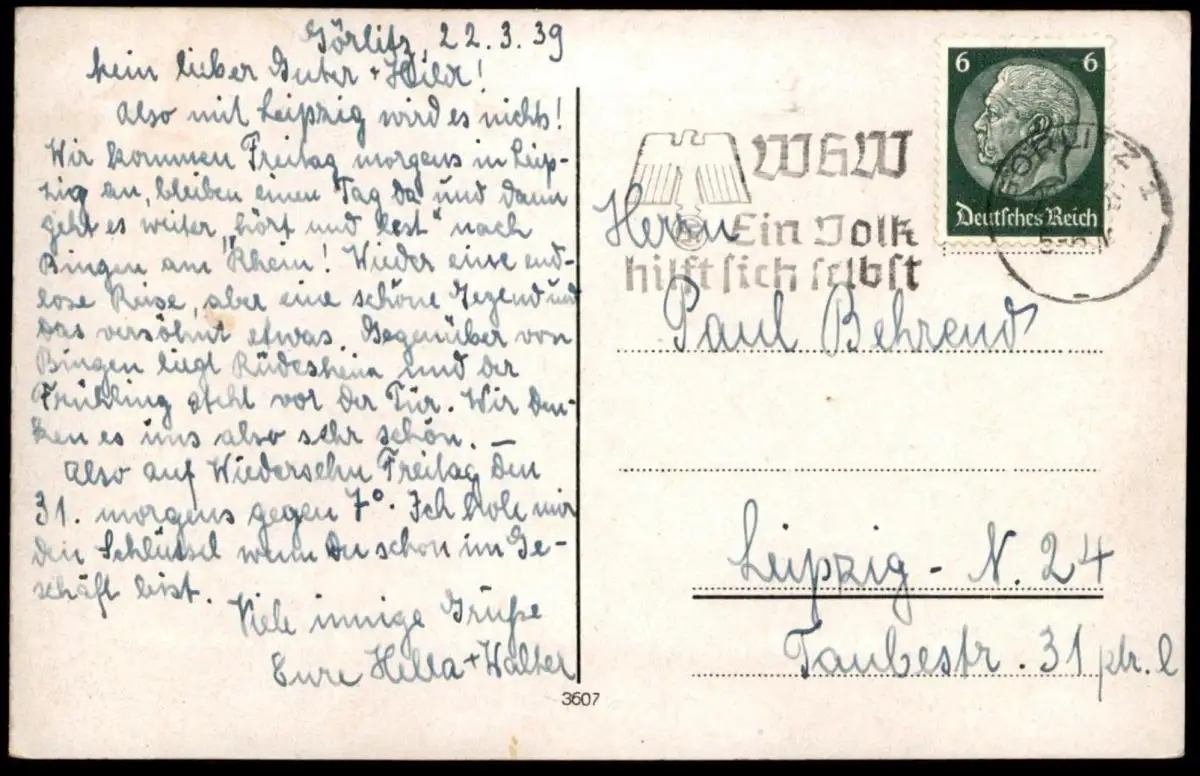 Görlitz, 22.3.39
Mein lieber Guter + Hilde!
Also mit Leipzig wird es nichts!
Wir kommen Freitag morgens in Leip-
zig an, bleiben einen Tag da und dann
geht es weiter „hört und lest“ nach
Bingen am Rhein! Wieder eine end-
lose Reise, aber eine schöne Gegend und
das versöhnt etwas. Gegenüber von
Bingen liegt Rüdesheim und der
Frühling steht vor der Tür. Wir den-
ken es uns also sehr schön. —
Also auf Wiedersehn Freitag den
31. morgens gegen 7°. Ich hole mir
den Schlüssel wenn Du schon im Ge-
schäft bist.
Viele innige Grüße
Eure Hella + Walter
3607
6 6
Deutsches Reich
GÖRLITZ 1
WHW
Ein Volk
hilft sich selbst
Herrn
Paul Behrend
Leipzig - N. 24
Taubestr. 31 ptr. l